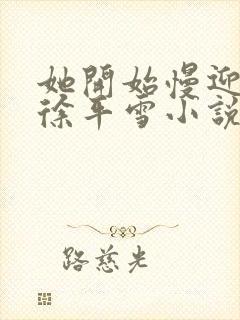 她開始慢迎
徐平雪小說
路慈光